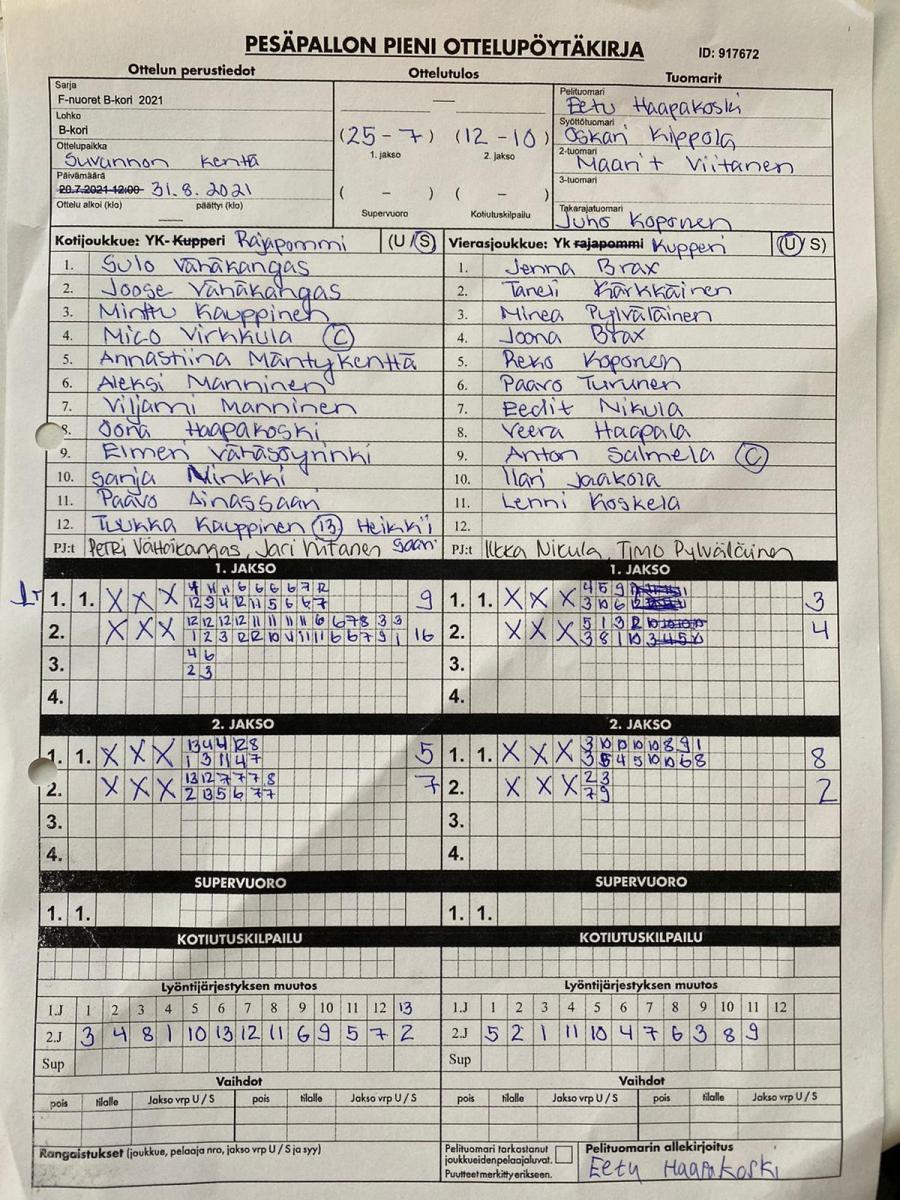 PESÄPALLON PIENI OTTELUPÖYTÄKIRJA
ID: 917672
Ottelun perustiedot
Ottelutulos
Tuomarit
Sarja
F-nuoret B-kori 2021
Lohko
B-kori
Ottelupaikka
Suvannon kenttä
Päivämäärä
20.7.2021 12:00 31.8.2021
Ottelu alkoi (klo) päättyi (klo)
(25 - 7) (12 - 10)
1. jakso 2. jakso
( - ) ( - )
Supervuoro Kotiutuskilpailu
Pelituomari
Eetu Haapakoski
Syöttötuomari
Oskari Kippola
2-tuomari
Maarit Viitanen
3-tuomari
Takarajatuomari
Juho Koponen
Kotijoukkue: YK- Kupperi Rajapommi (U / S)
1. Sulo Vähäkangas
2. Joose Vähäkangas
3. Minttu Kauppinen
4. Mico Virkkula C
5. Annastiina Mäntykenttä
6. Aleksi Manninen
7. Viljami Manninen
8. Oona Haapakoski
9. Elmeri Vähäsöyrinki
10. Sanja Ninkki
11. Paavo Ainassaari
12. Tuukka Kauppinen 13. Heikki
PJ:t Petri Vähäkangas, Jari Nitanen Saari
Vierasjoukkue: Yk rajapommi Kupperi (U / S)
1. Jenna Brax
2. Taneli Kärkkäinen
3. Minea Pylväläinen
4. Joona Brax
5. Reko Koponen
6. Paavo Turunen
7. Eedit Nikula
8. Veera Haapala
9. Anton Salmela C
10. Ilari Jaakola
11. Lenni Koskela
12.
PJ:t Ilkka Nikula, Timo Pylväläinen
1. JAKSO
1. 1. X X X 4 11 11 6 6 6 6 7 12 9
12 3 4 12 11 5 6 6 7
2. X X X 12 12 12 12 11 11 11 11 6 6 7 8 3 3 16
1 2 3 12 12 10 4 11 11 6 6 7 9 1
3. 4 6
2 3
4.
1. JAKSO
1. 1. X X X 4 5 9 3
3 10 6
2. X X X 5 1 3 2 4
3 8 1 10
3.
4.
2. JAKSO
1. 1. X X X 13 4 4 12 8 5
1 3 11 4 7
2. X X X 13 12 7 7 7 8 7
2 13 5 6 7 7
3.
4.
2. JAKSO
1. 1. X X X 3 10 10 10 10 8 9 1 8
3 5 4 5 10 10 6 8
2. X X X 2 3 2
7 9
3.
4.
SUPERVUORO
1. 1.
SUPERVUORO
1. 1.
KOTIUTUSKILPAILU
KOTIUTUSKILPAILU
Lyöntijärjestyksen muutos
1.J 1 2 3 4 5 6 7 8 9 10 11 12 13
2.J 3 4 8 1 10 13 12 11 6 9 5 7 2
Sup
Lyöntijärjestyksen muutos
1.J 1 2 3 4 5 6 7 8 9 10 11 12
2.J 5 2 1 11 10 4 7 6 3 8 9
Sup
Vaihdot
pois tilalle Jakso vrp U / S pois tilalle Jakso vrp U / S
Vaihdot
pois tilalle Jakso vrp U / S pois tilalle Jakso vrp U / S
Rangaistukset (joukkue, pelaaja nro, jakso vrp U / S ja syy)
Pelituomari tarkastanut
joukkueidenpelaajaluvat.
Puutteet merkitty erikseen.
Pelituomarin allekirjoitus
Eetu Haapakoski